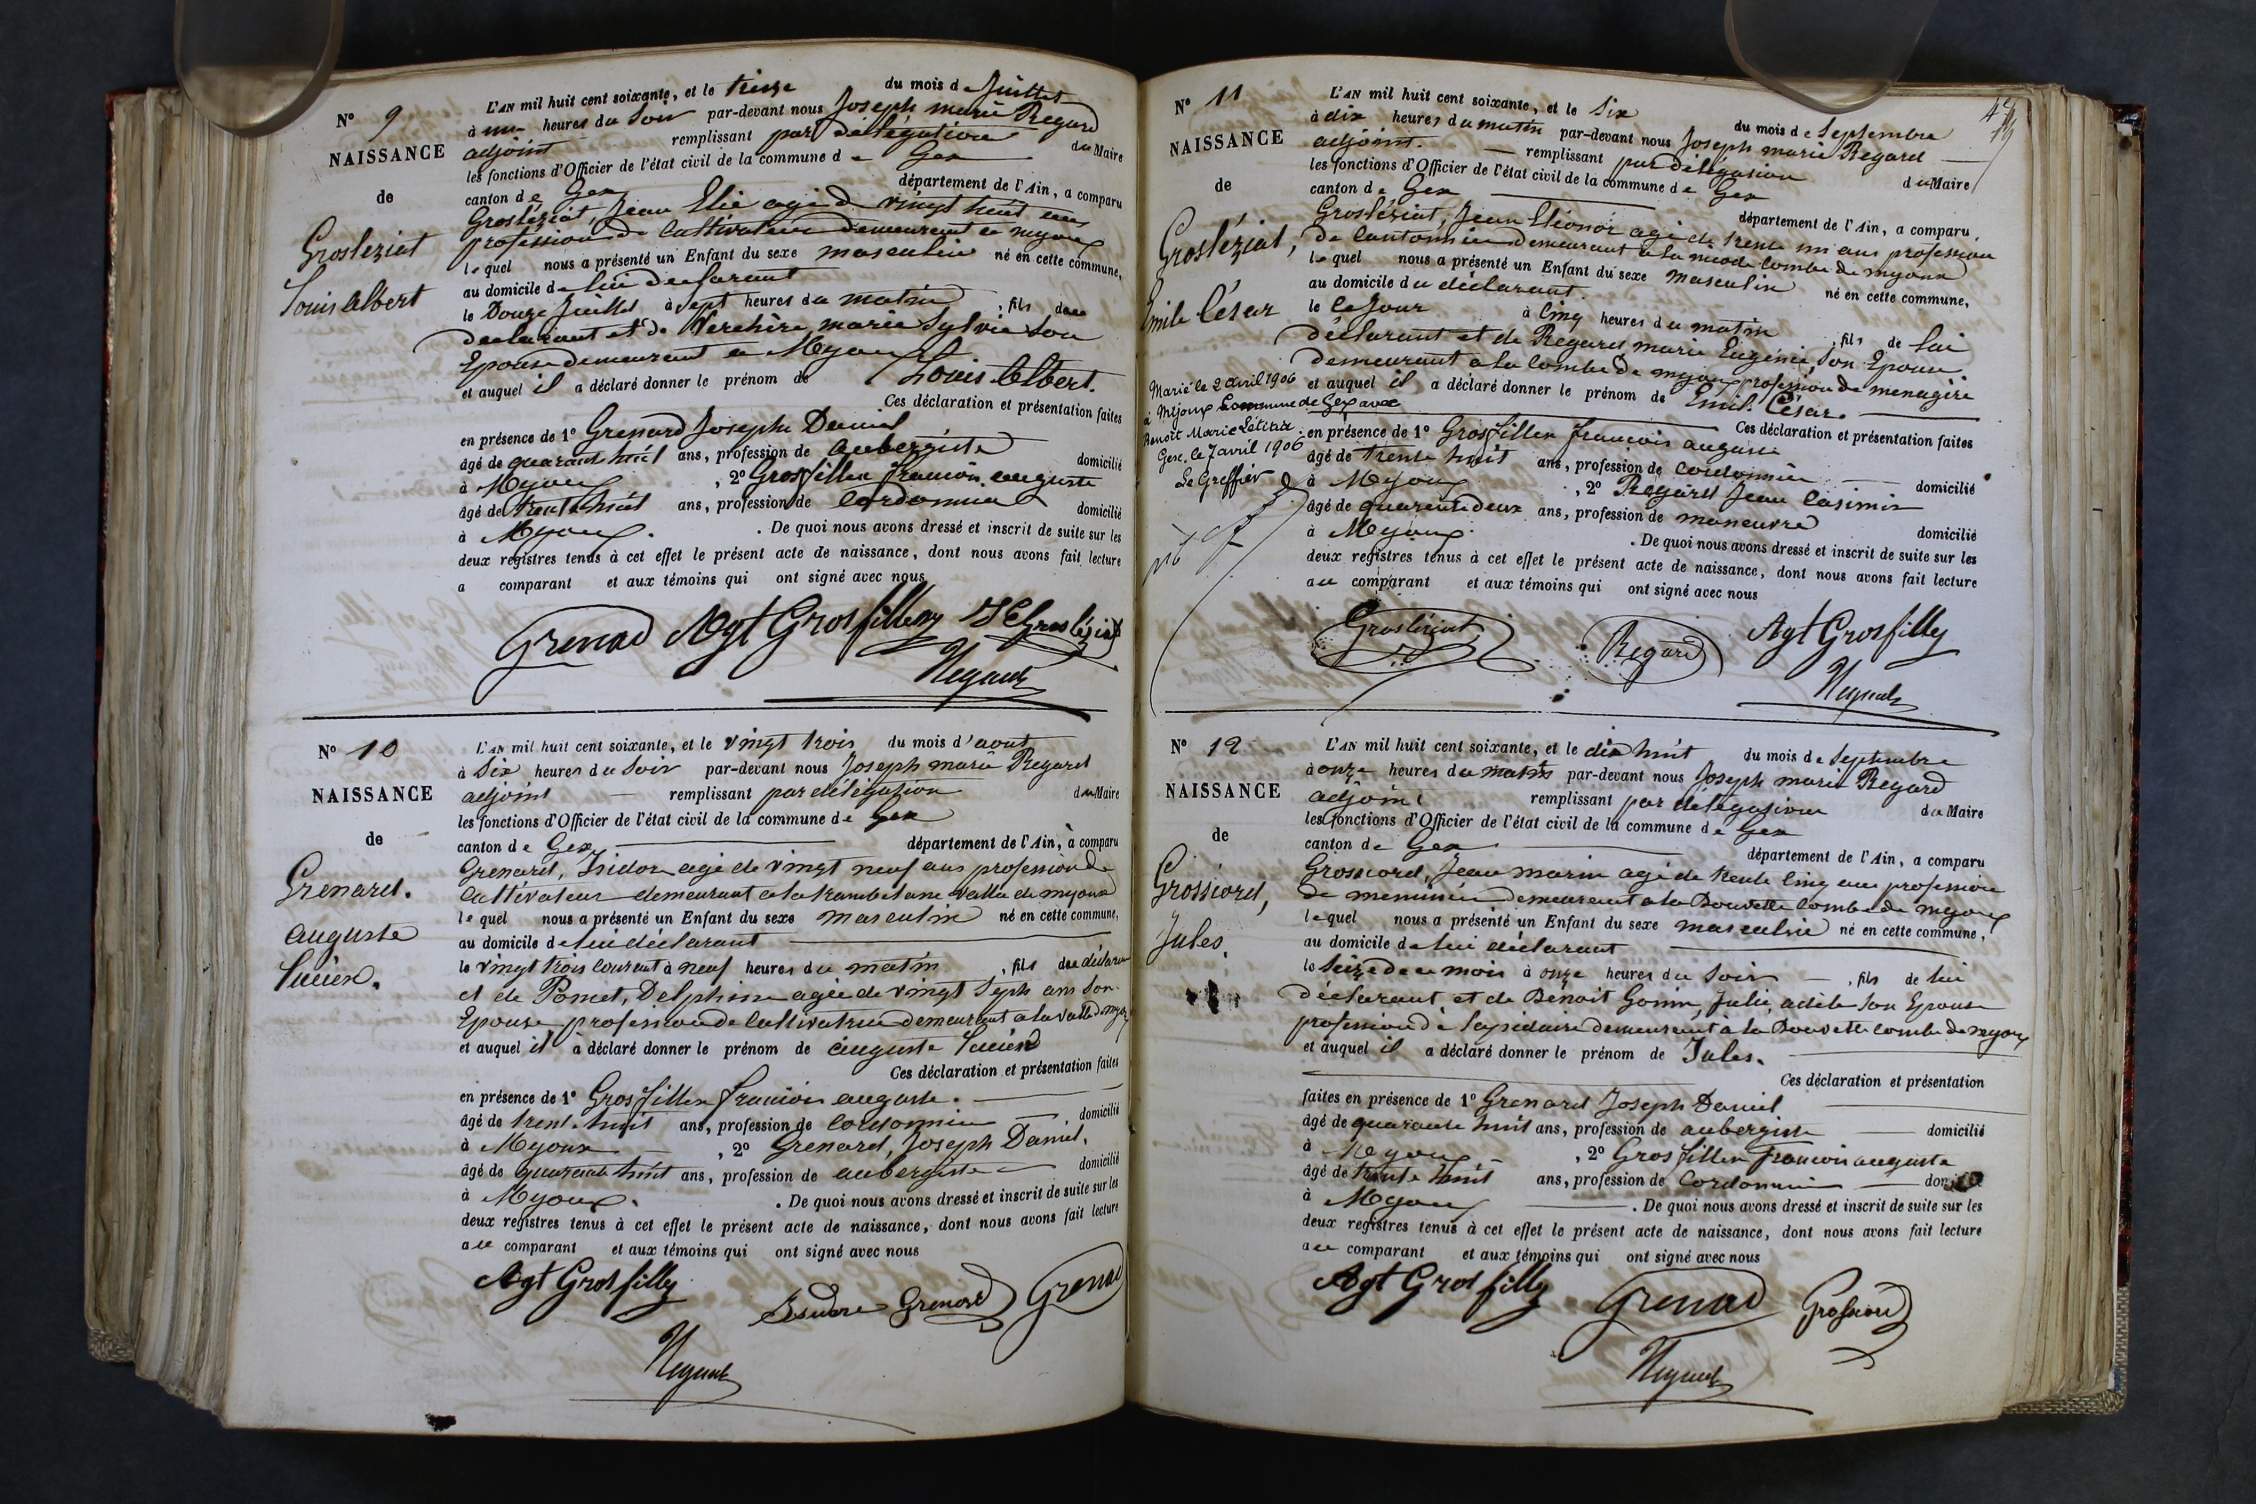 N° 9
NAISSANCE
de
Grosléziat
Louis Albert
L'AN mil huit cent soixante, et le treize du mois de Juillet
à une heures du Soir par-devant nous Joseph marie Regard
adjoint remplissant par délégation du Maire
les fonctions d'Officier de l'état civil de la commune de Gex
canton de Gex département de l'Ain, a comparu
Grosléziat, Jean Elie agé d vingt huit ans
profession de Cultivateur demeurant a myoux
lequel nous a présenté un Enfant du sexe masculin né en cette commune,
au domicile de lui declarant
le Douze Juillet à Sept heures du matin, fils de
declarant et de Verchère, marie Sylvie Son
Epouse demeurant a Myoux
et auquel il a déclaré donner le prénom de Louis Albert.
Ces déclaration et présentation faites
en présence de 1° Grenard Joseph Daniel
âgé de quarant huit ans, profession de aubergiste domicilié
à Myoux, 2° Grosfillex francois auguste
âgé de trente huit ans, profession de Cordonnier domicilié
à Myoux. De quoi nous avons dressé et inscrit de suite sur les
deux registres tenus à cet effet le présent acte de naissance, dont nous avons fait lecture
a comparant et aux témoins qui ont signé avec nous
Grenad Agt Grosfilley J E Grosléziat
Regard
N° 10
NAISSANCE
de
Grenard.
auguste
Lucien.
L'AN mil huit cent soixante, et le vingt trois du mois d'aout
à Six heures du Soir par-devant nous Joseph marie Regard
adjoint remplissant par délégation du Maire
les fonctions d'Officier de l'état civil de la commune de Gex
canton de Gex département de l'Ain, à comparu
Grenard, Isidor agé de vingt neuf ans profession de
Cultivateur demeurant a la vallée de myoux
lequel nous a présenté un Enfant du sexe masculin né en cette commune,
au domicile de lui déclarant
le vingt trois courant à neuf heures du matin, fils du déclarant
et de Pomet, Delphine agée de vingt Septh ans Son
Epouse profession de Cultivatrice demeurant a la vallé d myoux
et auquel il à déclaré donner le prénom de auguste Lucien
Ces déclaration et présentation faites
en présence de 1° Grosfillex francois auguste.
âgé de trent.huit ans, profession de cordonnier domicilié
à Myoux, 2° Grenard, Joseph Daniel,
âgé de quarante huit ans, profession de aubergiste domicilié
à Myoux. De quoi nous avons dressé et inscrit de suite sur les
deux registres tenus à cet effet le présent acte de naissance, dont nous avons fait lecture
au comparant et aux témoins qui ont signé avec nous
Agt Grosfilley Isidore Grenard Grenad
Regard
47
N° 11
NAISSANCE
de
Grosléziat,
Emile César
Marié le 2 avril 1906
à Mijoux Commune de Gex avec
Benoit Marie Létitia
Gex, le 7 avril 1906
Le Greffier
L'AN mil huit cent soixante, et le Six du mois de Septembre
à dix heures du matin par-devant nous Joseph marie Regard
adjoint. remplissant par délégation du Maire
les fonctions d'Officier de l'état civil de la commune de Gex
canton de Gex département de l'Ain, a comparu
Grosléziat, Jean Eléonor agé de trente un ans profession
de Cantonnier demeurant a la combe de myoux
lequel nous a présenté un Enfant du sexe masculin né en cette commune,
au domicile du déclarant.
le ce Jour à Cinq heures du matin, fils de lui
déclarant et de Regard marie Eugénie, Son Epouse
demeurant a la Combe de myoux profession de menagère
et auquel il a déclaré donner le prénom de Emile César.
Ces déclaration et présentation faites
en présence de 1° Grosfillex francois auguste
âgé de trente huit ans, profession de cordonnier domicilié
à Myoux, 2° Regard Jean Casimir
âgé de quarante deux ans, profession de maneuvre domicilié
à Myoux. De quoi nous avons dressé et inscrit de suite sur les
deux registres tenus à cet effet le présent acte de naissance, dont nous avons fait lecture
au comparant et aux témoins qui ont signé avec nous
Grosléziat Regard Agt Grosfilley
Regard
N° 12
NAISSANCE
de
Grossiord,
Jules.
L'AN mil huit cent soixante, et le dix huit du mois de Septembre
à onze heures du matin par-devant nous Joseph marie Regard
adjoint remplissant par délégation du Maire
les fonctions d'Officier de l'état civil de la commune de Gex
canton de Gex département de l'Ain, a comparu
Grossiord, Jean marin agé de trente Cinq ans profession
de menuisier demeurant a la Douvette combe de myoux
lequel nous a présenté un Enfant du sexe masculin né en cette commune,
au domicile de lui déclarant
le Seize de ce mois à onze heures du Soir, fils de lui
déclarant et de Benoit Gonin, Julie, adèle Son Epouse
profession de lapidaire demeurant à la Douvette combe de myoux
et auquel il a déclaré donner le prénom de Jules.
Ces déclaration et présentation
faites en présence de 1° Grenard Joseph Daniel
âgé de quarante huit ans, profession de aubergiste domicilié
à Myoux, 2° Grosfillex francois auguste
âgé de trente huit ans, profession de Cordonnier
à Myoux. De quoi nous avons dressé et inscrit de suite sur les
deux registres tenus à cet effet le présent acte de naissance, dont nous avons fait lecture
au comparant et aux témoins qui ont signé avec nous
Agt Grosfilley Grenad Grossiord
Regard